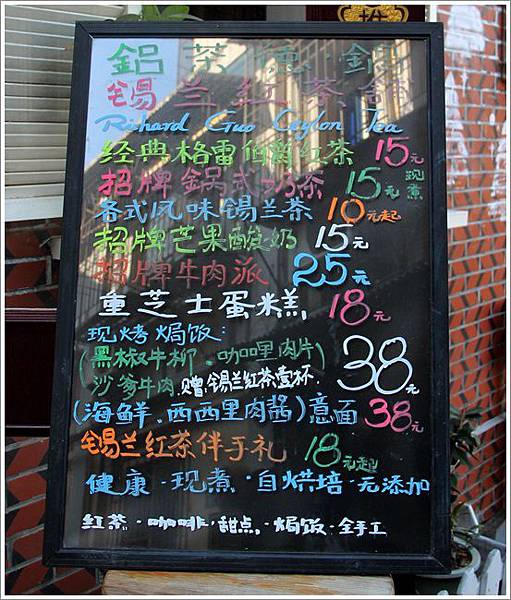 鋁茶德·鍋
锡兰红茶铺
Richard Guo Ceylon Tea
经典格雷伯爵红茶 15元
招牌鍋式奶茶 15元 现煮
各式风味锡兰茶 10元起
招牌芒果酸奶 15元
招牌牛肉派 25元
重芝士蛋糕 18元
现烤焗饭:
(黑椒牛柳·咖喱肉片 38元
沙爹牛肉·赠:锡兰红茶壹杯.
(海鲜·西西里肉酱)意面 38元
锡兰红茶伴手礼 18元起
健康·现煮·自烘培·无添加
红茶·咖啡·甜点·焗饭·全手工